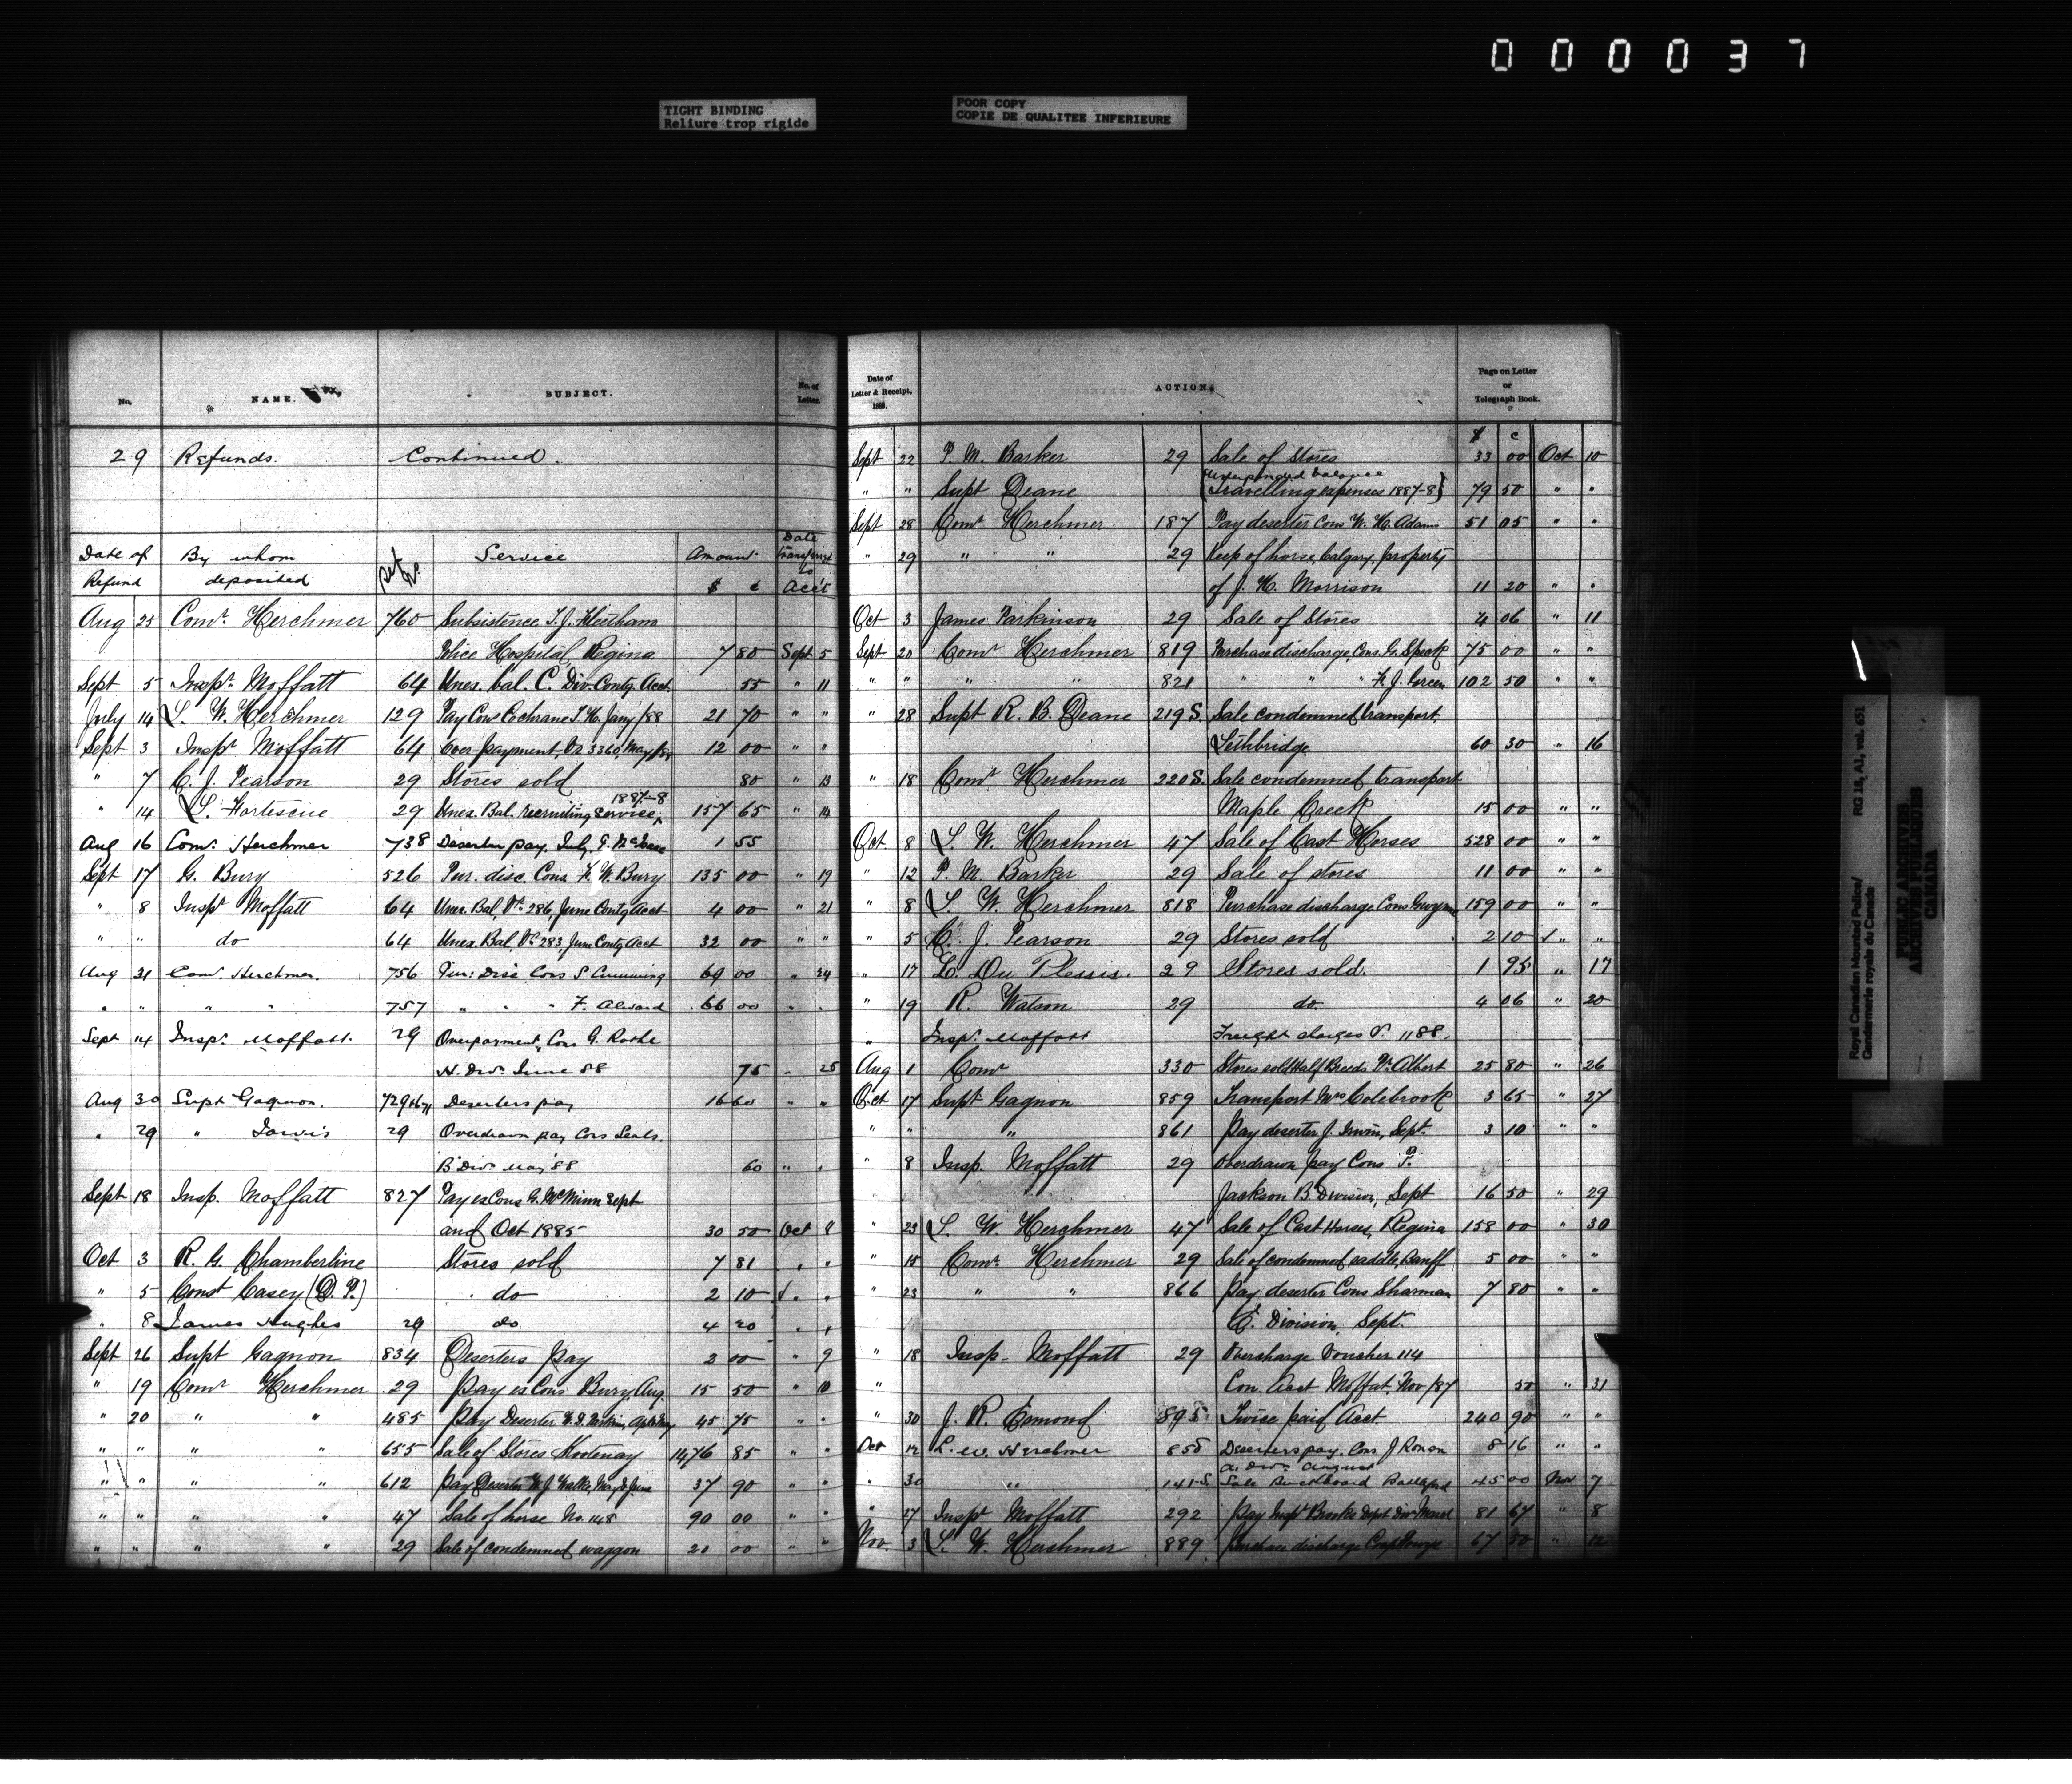 000037
TIGHT BINDING
Reliure trop rigide
POOR COPY
COPIE DE QUALITEE INFERIEURE
No. NAME. SUBJECT. No. of Letter.
29 Refunds. Continued.
Date of Refund By whom deposited Ref No. Service Amount $ c Date transferred to Acc't
Aug 25 Comr. Herchmer 760 Subsistence T. J. Fleetham
Police Hospital, Regina 7 80 Sept 5
Sept 5 Inspr. Moffatt 64 Unex. bal. C. Div. Contg. Acct. 55 " 11
July 14 L. W. Herchmer 129 Pay Cons Cochrane T. H. Jany/88 21 70 " "
Sept 3 Inspr Moffatt 64 Over payment, Vr 3360, May/88 12 00 " "
" 7 C. J. Pearson 29 Stores sold 80 " 13
" 14 L. Fortescue 29 Unex. Bal. recruiting service, 1887-8 157 65 " 14
Aug 16 Comr. Herchmer 738 Deserter pay, July, 1 55
Sept 17 G. Bury 526 Pur. disc. Cons. F. W. Bury 135 00 " 19
" 8 Inspr Moffatt 64 Unex. Bal, Vr. 286, June Contg Acct 4 00 " 21
" " do 64 Unex. Bal, Vr. 283, June Contg Acct 32 00 " "
Aug 31 Comr. Herchmer. 756 Pur: Disc Cons S Cumming 69 00 " 24
" " " " 757 " " " F. Alvard 66 00 " "
Sept 14 Inspr. Moffatt. 29 Overpayment, Cons G. Rothe
H. Divn June 88 75 " 25
Aug 30 Supt Gagnon. 729 Deserters pay 16 60 " "
" 29 " Jarvis 29 Overdrawn pay Cons Seals.
B Divn May 88 60 " "
Sept 18 Insp. Moffatt 827 Pay ex Cons G. McMinn Sept
and Oct 1885 30 50 Oct 8
Oct 3 R. G. Chamberline Stores sold 7 81 " "
" 5 Const Casey (D. P.) do 2 10 √ " "
" 8 James Hughes 29 do 4 20 " "
Sept 26 Supt Gagnon 834 Deserters pay 2 00 " 9
" 19 Comr Herchmer 29 Pay ex Cons Bury, Aug. 15 50 " 10
" 20 " " 485 Pay Deserter 45 75 " "
" " " " 655 Sale of Stores Kootenay 1476 85 " "
" " " " 612 Pay Deserter W. J. Walke, May & June 37 90 " "
" " " " 47 Sale of horse No. 1148 90 00 " "
" " " " 29 Sale of condemned waggon 20 00 " "
Date of Letter & Receipt, 188 . ACTION. Page on Letter or Telegraph Book.
$ c
Sept 22 P. M. Barker 29 Sale of Stores 33 00 Oct 10
" " Supt Deane (Unexpended balance
Travelling expenses 1887-8) 79 50 " "
Sept 28 Comr Herchmer 187 Pay deserter Cons W. H. Adams 51 05 " "
" 29 " " 29 Keep of horse, Calgary, property
of J. H. Morrison 11 20 " "
Oct 3 James Parkinson 29 Sale of Stores 4 06 " 11
Sept 20 Comr Herchmer 819 Purchase discharge, Cons. G. Speck 75 00 " "
" " " " 821 " " " F. J. Green 102 50 " "
" 28 Supt R. B. Deane 219 S. Sale condemned transport,
Lethbridge 60 30 " 16
" 18 Comr Herchmer 220 S. Sale condemned transport
Maple Creek 15 00 " "
Oct 8 L. W. Herchmer 47 Sale of Cast Horses 528 00 " "
" 12 P. M. Barker 29 Sale of stores 11 00 " "
" 8 L. W. Herchmer 818 Purchase discharge Cons Gwynne 159 00 " "
" 5 C. J. Pearson 29 Stores sold 2 10 √ " "
" 17 L. Du Plessis. 29 Stores sold. 1 95 " 17
" 19 R. Watson 29 do. 4 06 " 20
" Inspr. Moffatt Freight charges V. 1188.
Aug 1 Comr 330 Stores sold Half Breeds Pr. Albert 25 80 " 26
Oct 17 Supt Gagnon 859 Transport Mrs Colebrook 3 65 " 27
" " " 861 Pay deserter J. Irwin, Sept. 3 10 " "
" 8 Insp. Moffatt 29 Overdrawn pay Cons P.
Jackson B. Division, Sept 16 50 " 29
" 23 L. W. Herchmer 47 Sale of Cast Horses, Regina 158 00 " 30
" 15 Comr. Herchmer 29 Sale of condemned saddle, Banff 5 00 " "
" 23 " " 866 Pay deserter Cons Sharman 7 80 " "
E. Division, Sept.
" 18 Insp. Moffatt 29 Overcharge Voucher 114
" Con. Acct Moffat, Nov/87 50 " 31
" 30 J. R. Esmond 895 Twice paid Acct. 240 90 " "
Oct 12 L. W. Herchmer 858 Deserters pay. Cons J Ronan 8 16 " "
A. Divn August
" 30 " 141 S. Sale Buckboard Battleford 45 00 Nov 7
" 27 Inspr Moffatt 292 Pay Inspr Brooke Dept Div March 81 67 " 8
Nov. 3 L. W. Herchmer 889 Purchase discharge 67 50 " 12
Royal Canadian Mounted Police/
Gendarmerie royale du Canada
RG 18, A1, vol. 651
PUBLIC ARCHIVES
ARCHIVES PUBLIQUES
CANADA